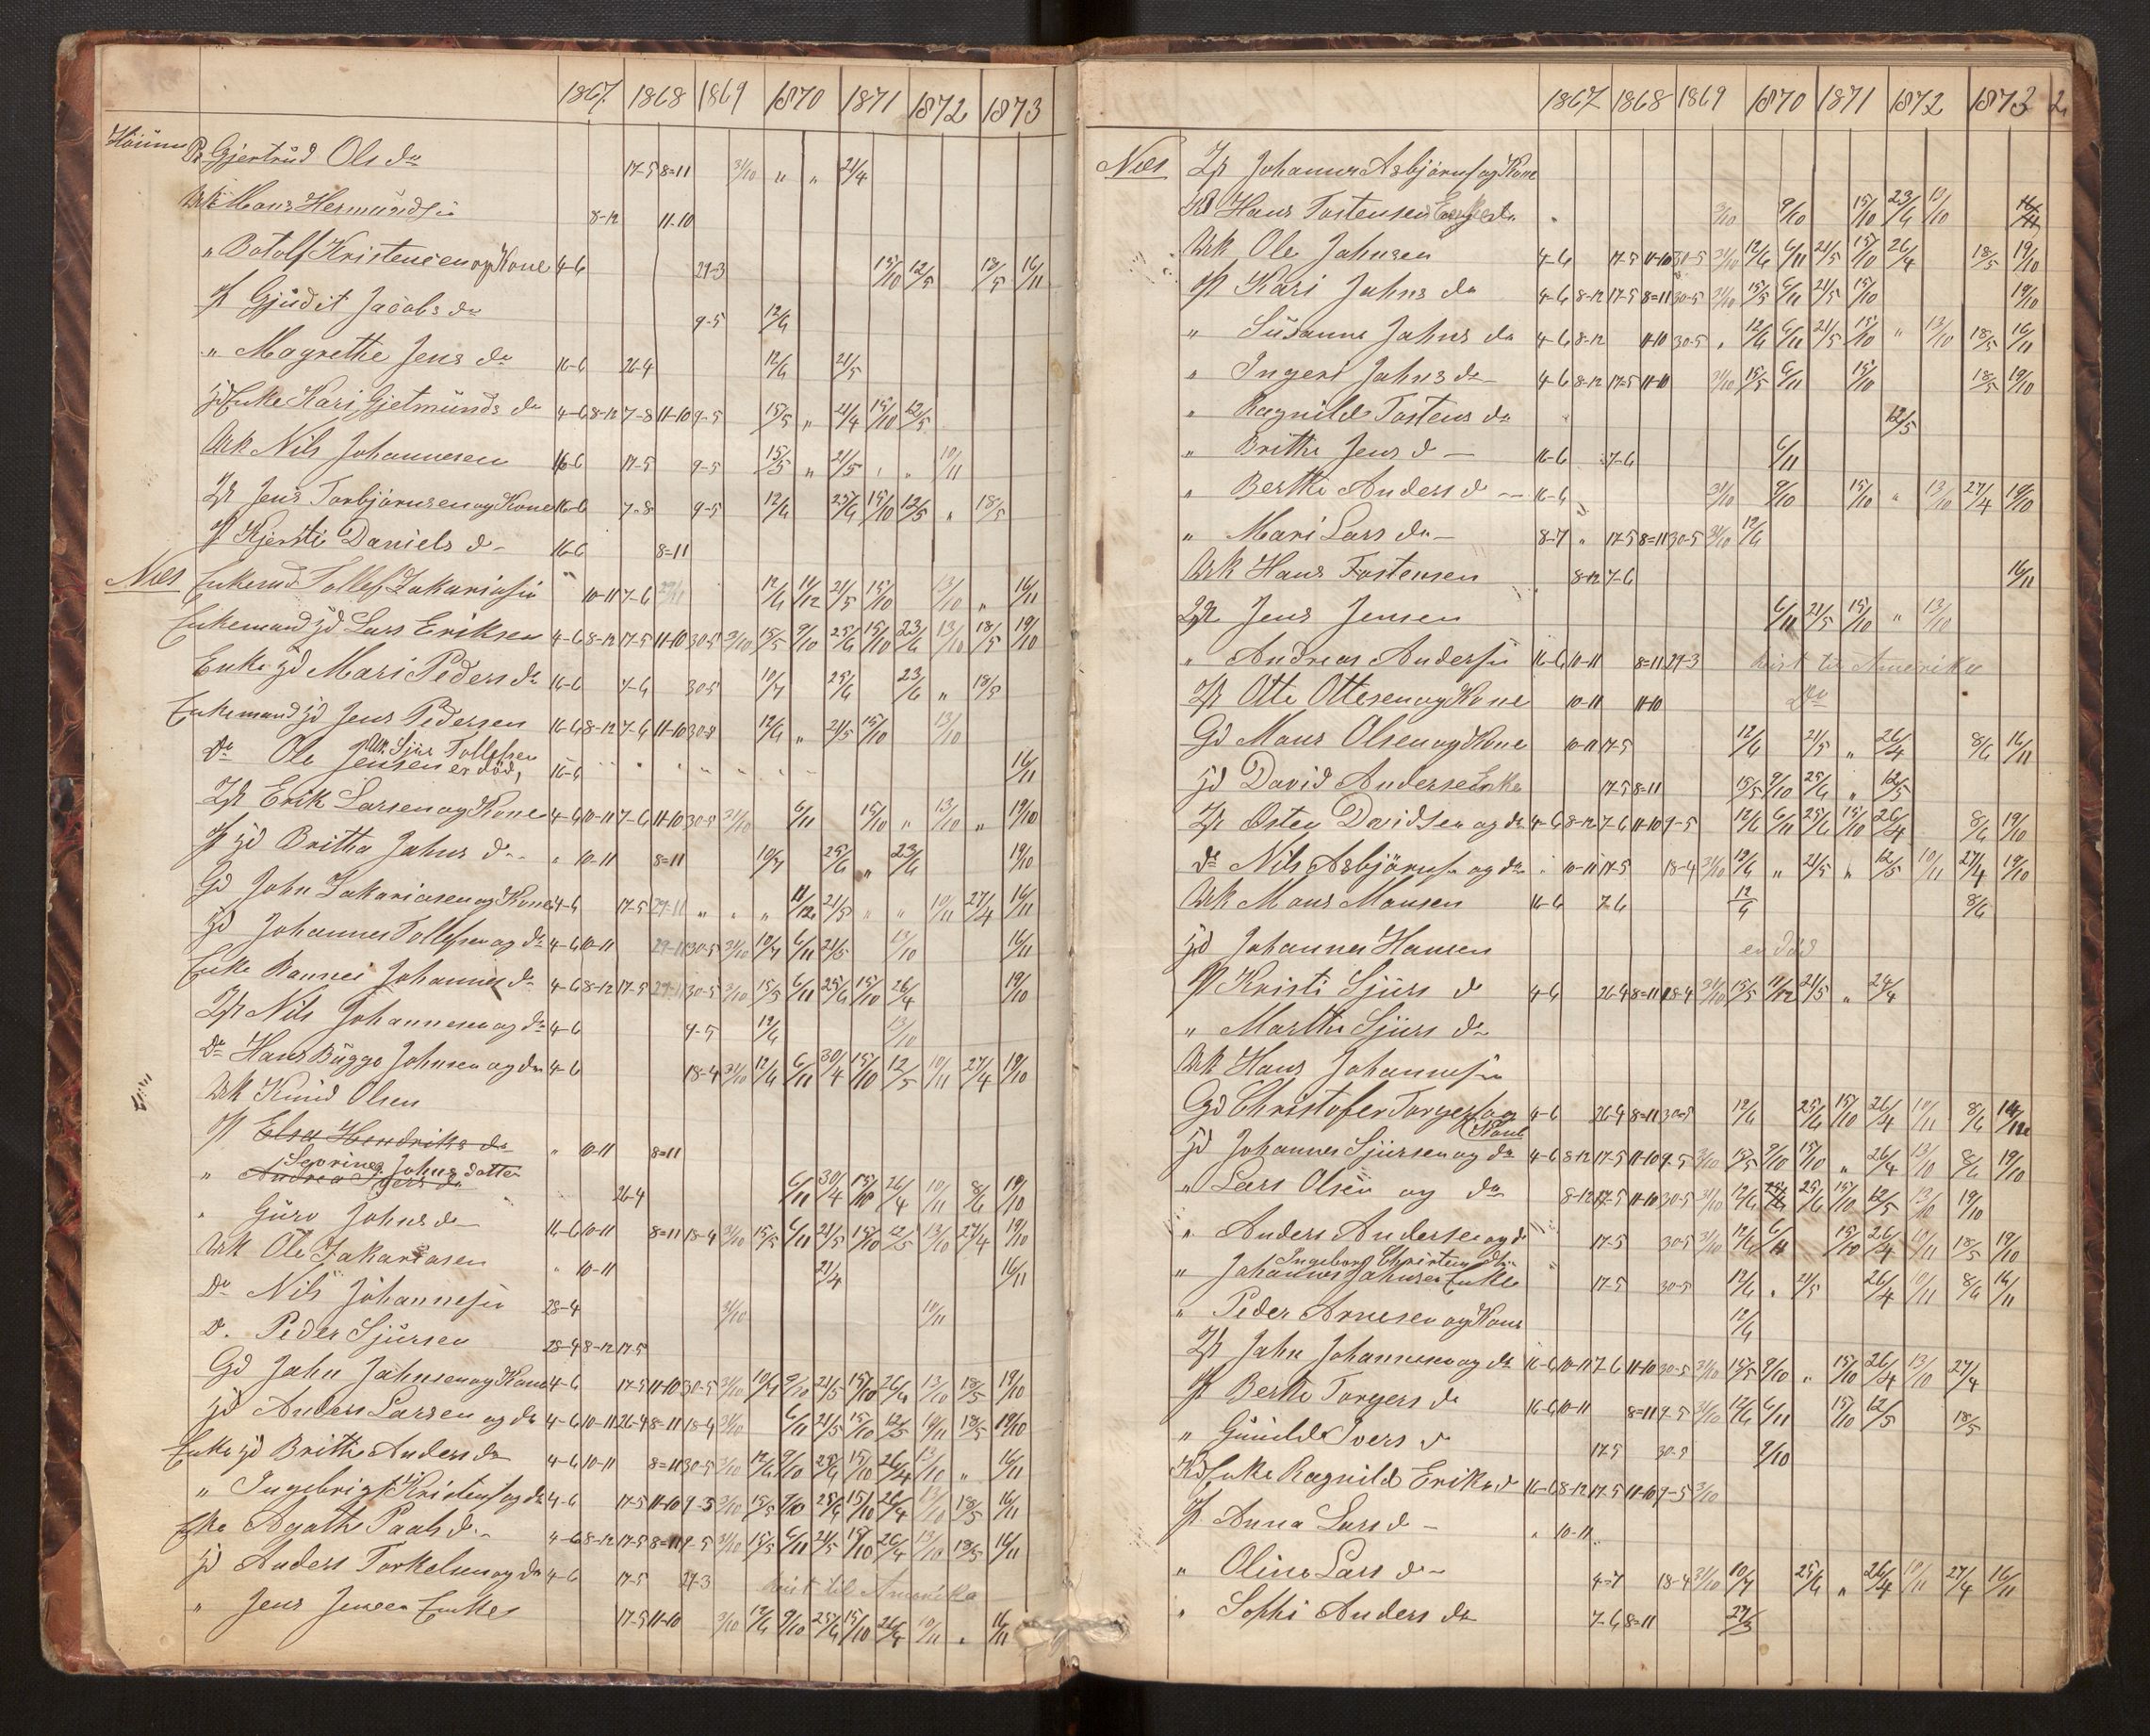 1867. 1868 1869 1870 1871 1872 1873
Gjertrud Ols da 17-5 8=11 31/10 " " 21/4
Mons Hermundsen 8-12 11-10
" Botolf Kristensen og Kone 4-6 29-3 15/10 12/5 18/5 16/11
Gjudit Jacobs da 9-5 12/6
" Magrethe Jens da 16-6 26-4 12/6 21/5
Enke Kari Gjetmunds da 4-6 8-12 7-8 11-10 9-5 15/5 " 21/4 15/10 12/5
Nils Johannesen 16-6 17-5 9-5 15/5 " 21/5 10/11
Jens Torbjørnsen og Kone 16-6 7-8 9-5 12/6 25/6 15/10 12/5 " 18/5
Kjersti Daniels d 16-6 8=11
Næs Tollef Zakariasen 10-11 7-6 12/6 11/12 21/5 15/10 13/10 " 16/11
Enkemand Lars Eriksen 4-6 8-12 17-5 11-10 30-5 31/10 15/5 9/10 25/6 15/10 23/6 13/10 18/5 19/10
Enke Mari Peders da 16-6 7-6 30-5 10/7 25/6 23/6 " 18/5
Enkemand Jens Pedersen 16-6 8-12 7-6 11-10 30-5 12/6 " 21/5 15/10 13/10
Sjur Tollefsen
Do Ole Jensen er død, 16-6 16/11
Erik Larsen og Kone 4-6 10-11 7-6 11-10 30-5 31/10 6/11 15/10 " 13/10 " 19/10
Britha Jahns d " 10-11 8=11 10/7 25/6 " 23/6 19/10
Gd John Zakariasen og Kone 4-6 17-5 29-11 " " " 11/12 21/5 " " 10/11 27/4 16/11
Johannes Tollefsen og do 4-6 10-11 29-11 30-5 31/10 10/7 6/11 21/5 13/10 16/11
Enke Johannes da 4-6 8-12 17-5 29-11 30-5 31/10 15/5 6/11 25/6 15/10 26/4 19/10
Nils Johannesen og do 4-6 9-5 12/6 13/10
Do Hans Bugge Johnsen og do 4-6 18-4 31/10 12/6 6/11 30/4 15/10 12/5 10/11 27/4 19/10
Knud Olsen
Elsa Hendriks da " 10-11 8=11
Severine Johns datter
" Andrea da 26-4 6/11 30/4 15/10 26/4 10/11 8/6 19/10
" Guro Johns d 16-6 10-11 8=11 18-4 31/10 15/5 6/11 21/5 15/10 12/5 13/10 27/4 19/10
Ole Zakariasen " 10-11 21/4 16/11
Do Nils Johannesen 28-4 31/10 10/11
Do Peder Sjursen 28-4 8-12 17-5
Gd Jahn Jahnsen og Kone 4-6 17-5 11-10 30-5 31/10 10/7 9/10 21/5 15/10 26/4 13/10 18/5 19/10
Anders Larsen og do 4-6 10-11 26-4 8=11 18-4 31/10 6/11 21/5 15/10 12/5 10/11 18/5 19/10
Enke Brithe Anders da 4-6 10-11 8=11 30-5 31/10 12/6 9/10 25/6 15/10 26/4 13/10 " 16/11
" Ingebrigt Kristens og do 4-6 17-5 11-10 9-5 31/10 15/5 9/10 25/6 15/10 26/4 13/10 18/5 16/11
Enke Agathe Paals d 4-6 8-12 17-5 8=11 9-5 31/10 15/5 6/11 21/5 15/10 26/4 13/10 18/5 16/11
Anders Torkelsen og do 4-6 17-5 29-3 reist til Amerika
" Jens Jensen Enke 17-5 11-10 31/10 12/6 9/10 25/6 15/10 26/4 10/11 " 16/11
1867 1868 1869 1870 1871 1872 1873 2
Næs Johannes Asbjørns og Kone
Hans Tostensen 31/10 9/10 15/10 23/6 13/10 16/11
Ole Jahnsen 4-6 17-5 11-10 30-5 31/10 12/6 6/11 21/5 15/10 26/4 18/5 19/10
Kari Jahns da 4-6 8-12 17-5 8=11 30-5 31/10 15/5 6/11 21/5 15/10 19/10
" Susanne Jahns da 4-6 8-12 11-10 30-5 " 12/6 6/11 21/5 15/10 " 13/10 18/5 16/11
" Ingeri Jahns da 4-6 8-12 17-5 11-10 31/10 15/5 6/11 15/10 18/5 19/10
" Ragnilde Tostens da 12/5
" Brithe Jens d 16-6 7-6 6/11
" Berthe Anders d 16-6 31/10 9/10 15/10 " 13/10 27/4 19/10
" Mari Lars da 8-7 " 17-5 8=11 30-5 31/10 12/6
Hans Tostensen 8-12 7-6 16/11
Jens Jensen 6/11 21/5 15/10 " 13/10
" Andreas Andersen 16-6 10-11 8=11 29-3 reist til Amerika
Otte Ottesen og Kone 10-11 11-10 Do
Gd Mons Olsen og Kone 10-11 17-5 12/6 21/5 " 26/4 8/6 16/11
David Andersen Enke 17-5 8=11 15/5 9/10 25/6 " 12/5
Østen Davidsen og do 4-6 8-12 7-6 11-10 9-5 12/6 6/11 25/6 15/10 26/4 8/6 19/10
do Nils Asbjørns og do " 10-11 17-5 18-4 31/10 12/6 " 21/5 " 12/5 10/11 27/4 19/10
Mons Monsen 16-6 7-6 12/6 8/6
Johannes Hansen er død
Kristi Sjurs d 4-6 26-4 8=11 18-4 31/10 15/5 11/12 21/5 " 26/4
" Marthe Sjurs da
Hans Johannesen
Gd Christofer Torgers og Kone 4-6 26-4 8=11 30-5 12/6 25/6 15/10 26/4 10/11 8/6
Johannes Sjursen og do 4-6 8-12 17-5 11-10 9-5 31/10 15/5 9/10 15/10 " 26/4 13/10 8/6 19/10
" Lars Olsen og do 8-12 17-5 11-10 30-5 31/10 12/6 25/6 15/10 12/5 13/10 19/10
" Anders Andersen og do 17-5 30-5 31/10 12/6 6/11 15/10 26/4 10/11 18/5 19/10
Ingeborg Christens dtr
" Johannes Jahnsen Enke 17-5 30-5 12/6 " 21/5 26/4 10/11 8/6 16/11
" Peder Arnesen og Kone 12/6
Jahn Johannesen og do 16-6 10-11 7-6 11-10 30-5 31/10 15/5 9/10 " 15/10 26/4 13/10 27/4
Berthe Torgers d 16-6 10-11 8=11 9-5 31/10 12/6 6/11 15/10 12/5 18/5
" Gunild Ivers d 17-5 30-5 9/10
Enke Ragnild Eriks d 16-6 8-12 17-5 11-10 9-5 31/10
Anna Lars d " 10-11
" Oline Lars d 4=7 18-4 31/10 10/7 25/6 " 26/4 10/11 27/4 16/11
" Sophi Anders da 7-6 8=11 27/3